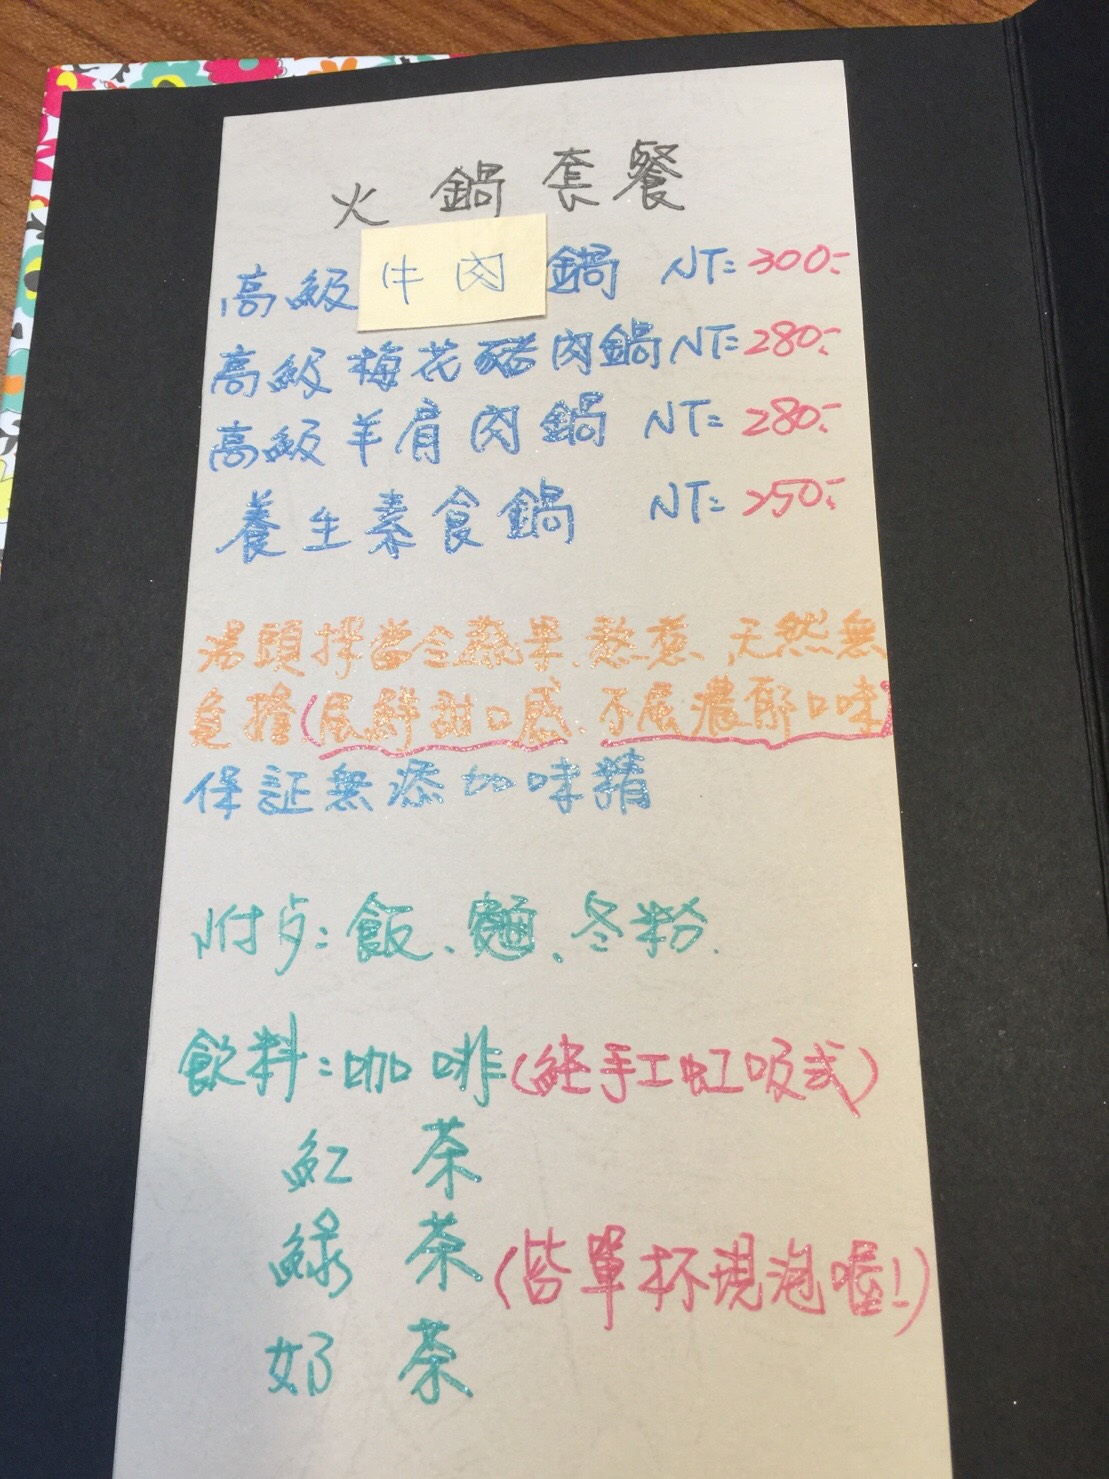 火鍋套餐
高級牛肉鍋 NT=300.-
高級梅花豬肉鍋 NT=280.-
高級羊肩肉鍋 NT=280.-
養生素食鍋 NT=250.-
湯頭採當令蔬果.熬煮、天然無
負擔(屬鮮甜口感、不屬濃郁口味)
保証無添加味精
附点:飯、麵、冬粉.
飲料:咖啡(純手工虹吸式)
紅茶
綠茶(皆單杯現泡喔!)
奶茶